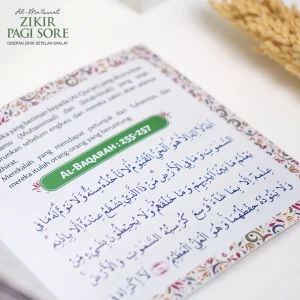 Al-Ma'tsurat
ZIKIR
PAGI SORE
DISERTAI ZIKIR SETELAH SHALAT
yang beriman kepada (Al-Qur'an) yang diturunkan
(Muhammad) dan (kitab-kitab) yang telah
sebelum engkau, dan mereka yakin akan adanya
akhirat.
Merekalah yang mendapat petunjuk dari Tuhannya, dan
mereka itulah orang-orang yang beruntung.
AL-BAQARAH : 255-257
اللَّهُ لَا إِلَٰهَ إِلَّا هُوَ الْحَيُّ الْقَيُّومُ لَا تَأْخُذُهُ سِنَةٌ وَلَا نَوْمٌ لَهُ مَا فِي
السَّمَاوَاتِ وَمَا فِي الْأَرْضِ مَنْ ذَا الَّذِي يَشْفَعُ عِنْدَهُ إِلَّا بِإِذْنِهِ
يَعْلَمُ مَا بَيْنَ أَيْدِيهِمْ وَمَا خَلْفَهُمْ وَلَا يُحِيطُونَ بِشَيْءٍ مِنْ
عِلْمِهِ إِلَّا بِمَا شَاءَ وَسِعَ كُرْسِيُّهُ السَّمَاوَاتِ وَالْأَرْضَ
وَلَا يَئُودُهُ حِفْظُهُمَا وَهُوَ الْعَلِيُّ الْعَظِيمُ لَا إِكْرَاهَ